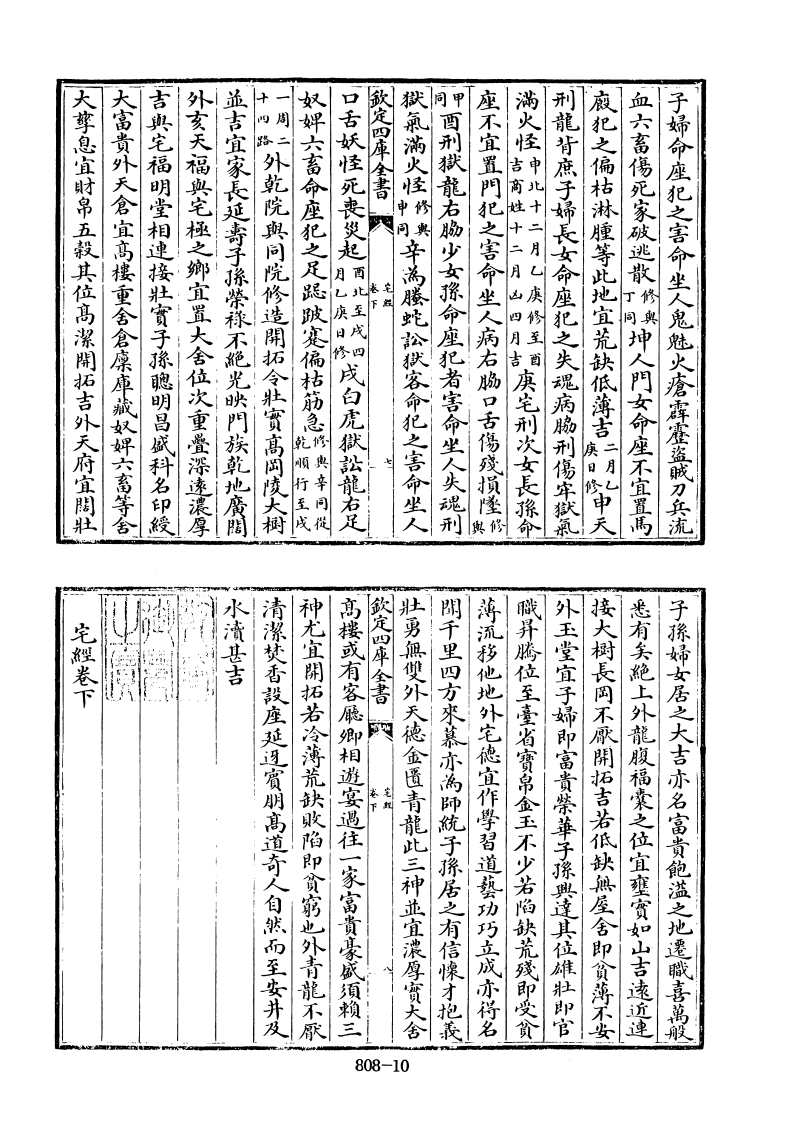 子婦命座犯之害命坐人鬼魅火瘡霹靂盜賊刀兵流
血六畜傷死家破逃散修與丁同坤人門女命座不宜置馬
廄犯之偏枯淋腫等此地宜荒缺低薄吉二月乙庚日修申天
刑龍背庶子婦長女命座犯之失魂病脇刑傷牢獄氣
滿火怪申北十二月乙庚修至酉吉商姓十二月凶四月吉庚宅刑次女長孫命
座不宜置門犯之害命坐人病右脇口舌傷殘損墜修與
甲同酉刑獄龍右脇少女孫命座犯者害命坐人失魂刑
獄氣滿火怪修與申同辛為螣蛇訟獄客命犯之害命坐人
欽定四庫全書
宅經
卷下
七
口舌妖怪死喪災起酉北至戌四月乙庚日修戌白虎獄訟龍右足
奴婢六畜命座犯之足跽跛蹇偏枯筋急修與辛同從乾順行至戌
一周二十四路外乾院與同院修造開拓令壯實高岡陵大樹
並吉宜家長延壽子孫榮祿不絕光映門族乾地廣闊
外亥天福與宅極之鄉宜置大舍位次重疊深遠濃厚
吉與宅福明堂相連接壯實子孫聰明昌盛科名印綬
大富貴外天倉宜高樓重舍倉廩庫藏奴婢六畜等舍
大孳息宜財帛五穀其位高潔開拓吉外天府宜闊壯
子孫婦女居之大吉亦名富貴飽溢之地遷職喜萬般
悉有矣絕上外龍腹福囊之位宜壅實如山吉遠近連
接大樹長岡不厭開拓吉若低缺無屋舍即貧薄不安
外玉堂宜子婦即富貴榮華子孫興達其位雄壯即官
職昇騰位至臺省寶帛金玉不少若陷缺荒殘即受貧
薄流移他地外宅德宜作學習道藝功巧立成亦得名
聞千里四方來慕亦為師統子孫居之有信懷才抱義
壯勇無雙外天德金匱青龍此三神並宜濃厚實大舍
欽定四庫全書
宅經
卷下
八
高樓或有客廳卿相遊宴過往一家富貴豪盛須賴三
神尤宜開拓若冷薄荒缺敗陷即貧窮也外青龍不厭
清潔焚香設座延迓賓朋高道奇人自然而至安井及
水瀆甚吉
宅經卷下
808-10